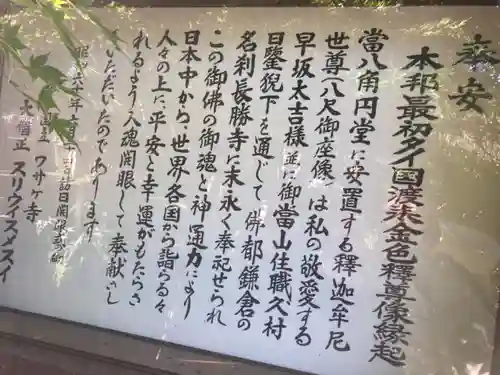 奉安
本邦最初タイ国渡来金色釋尊像縁起
當八角円堂に安置する釋迦牟尼
世尊(八尺御座像)は私の敬愛する
早坂太吉様並に御當山住職久村
日鑒猊下を通じて佛都鎌倉の
名刹長勝寺に末永く奉祀せられ
この御佛の御魂と神通力により
日本中から、世界各国から詣らる々
人々の上に、平安と幸運がもたらさ
れるよう入魂開眼して奉献さし
ていただいたのであります
昭和六十年六月
ワサケ寺
大僧正 スリウイスメスイ